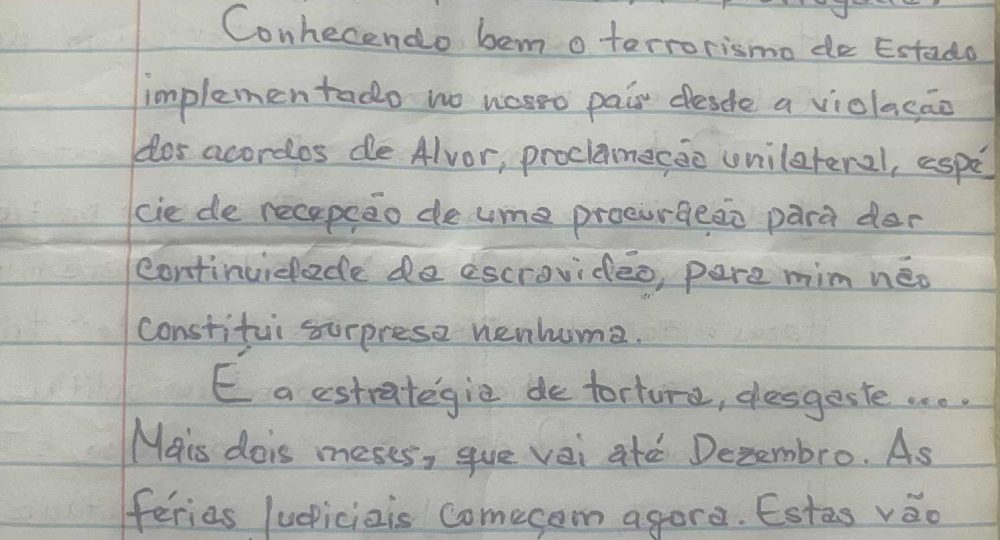 Conhecendo bem o terrorismo de Estado
implementado no nosso país desde a violação
dos acordos de Alvor, proclamação unilateral, espé
cie de recepção de uma procuração para dar
continuidade da escravidão, para mim não
constitui surpresa nenhuma.
É a estratégia de tortura, desgaste....
Mais dois meses, que vai até Dezembro. As
férias judiciais começam agora. Estas vão